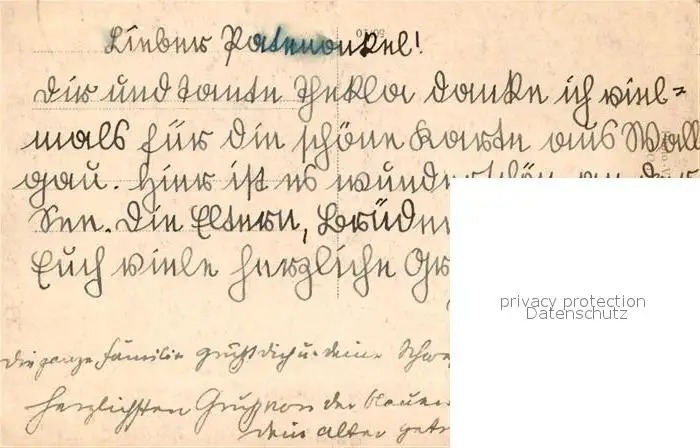 Lieber Patenonkel!
Dir und Tante Thekla danke ich viel=
mals für die schöne Karte aus Wall
gau. Hier ist es wunderschön an der
See. Die Eltern, Brüder
Euch viele herzliche Gr
Die ganze Familie grüßt dich u. deine Schw
Herzlichsten Gruß von der blauen
Dein alter getr
privacy protection
Datenschutz